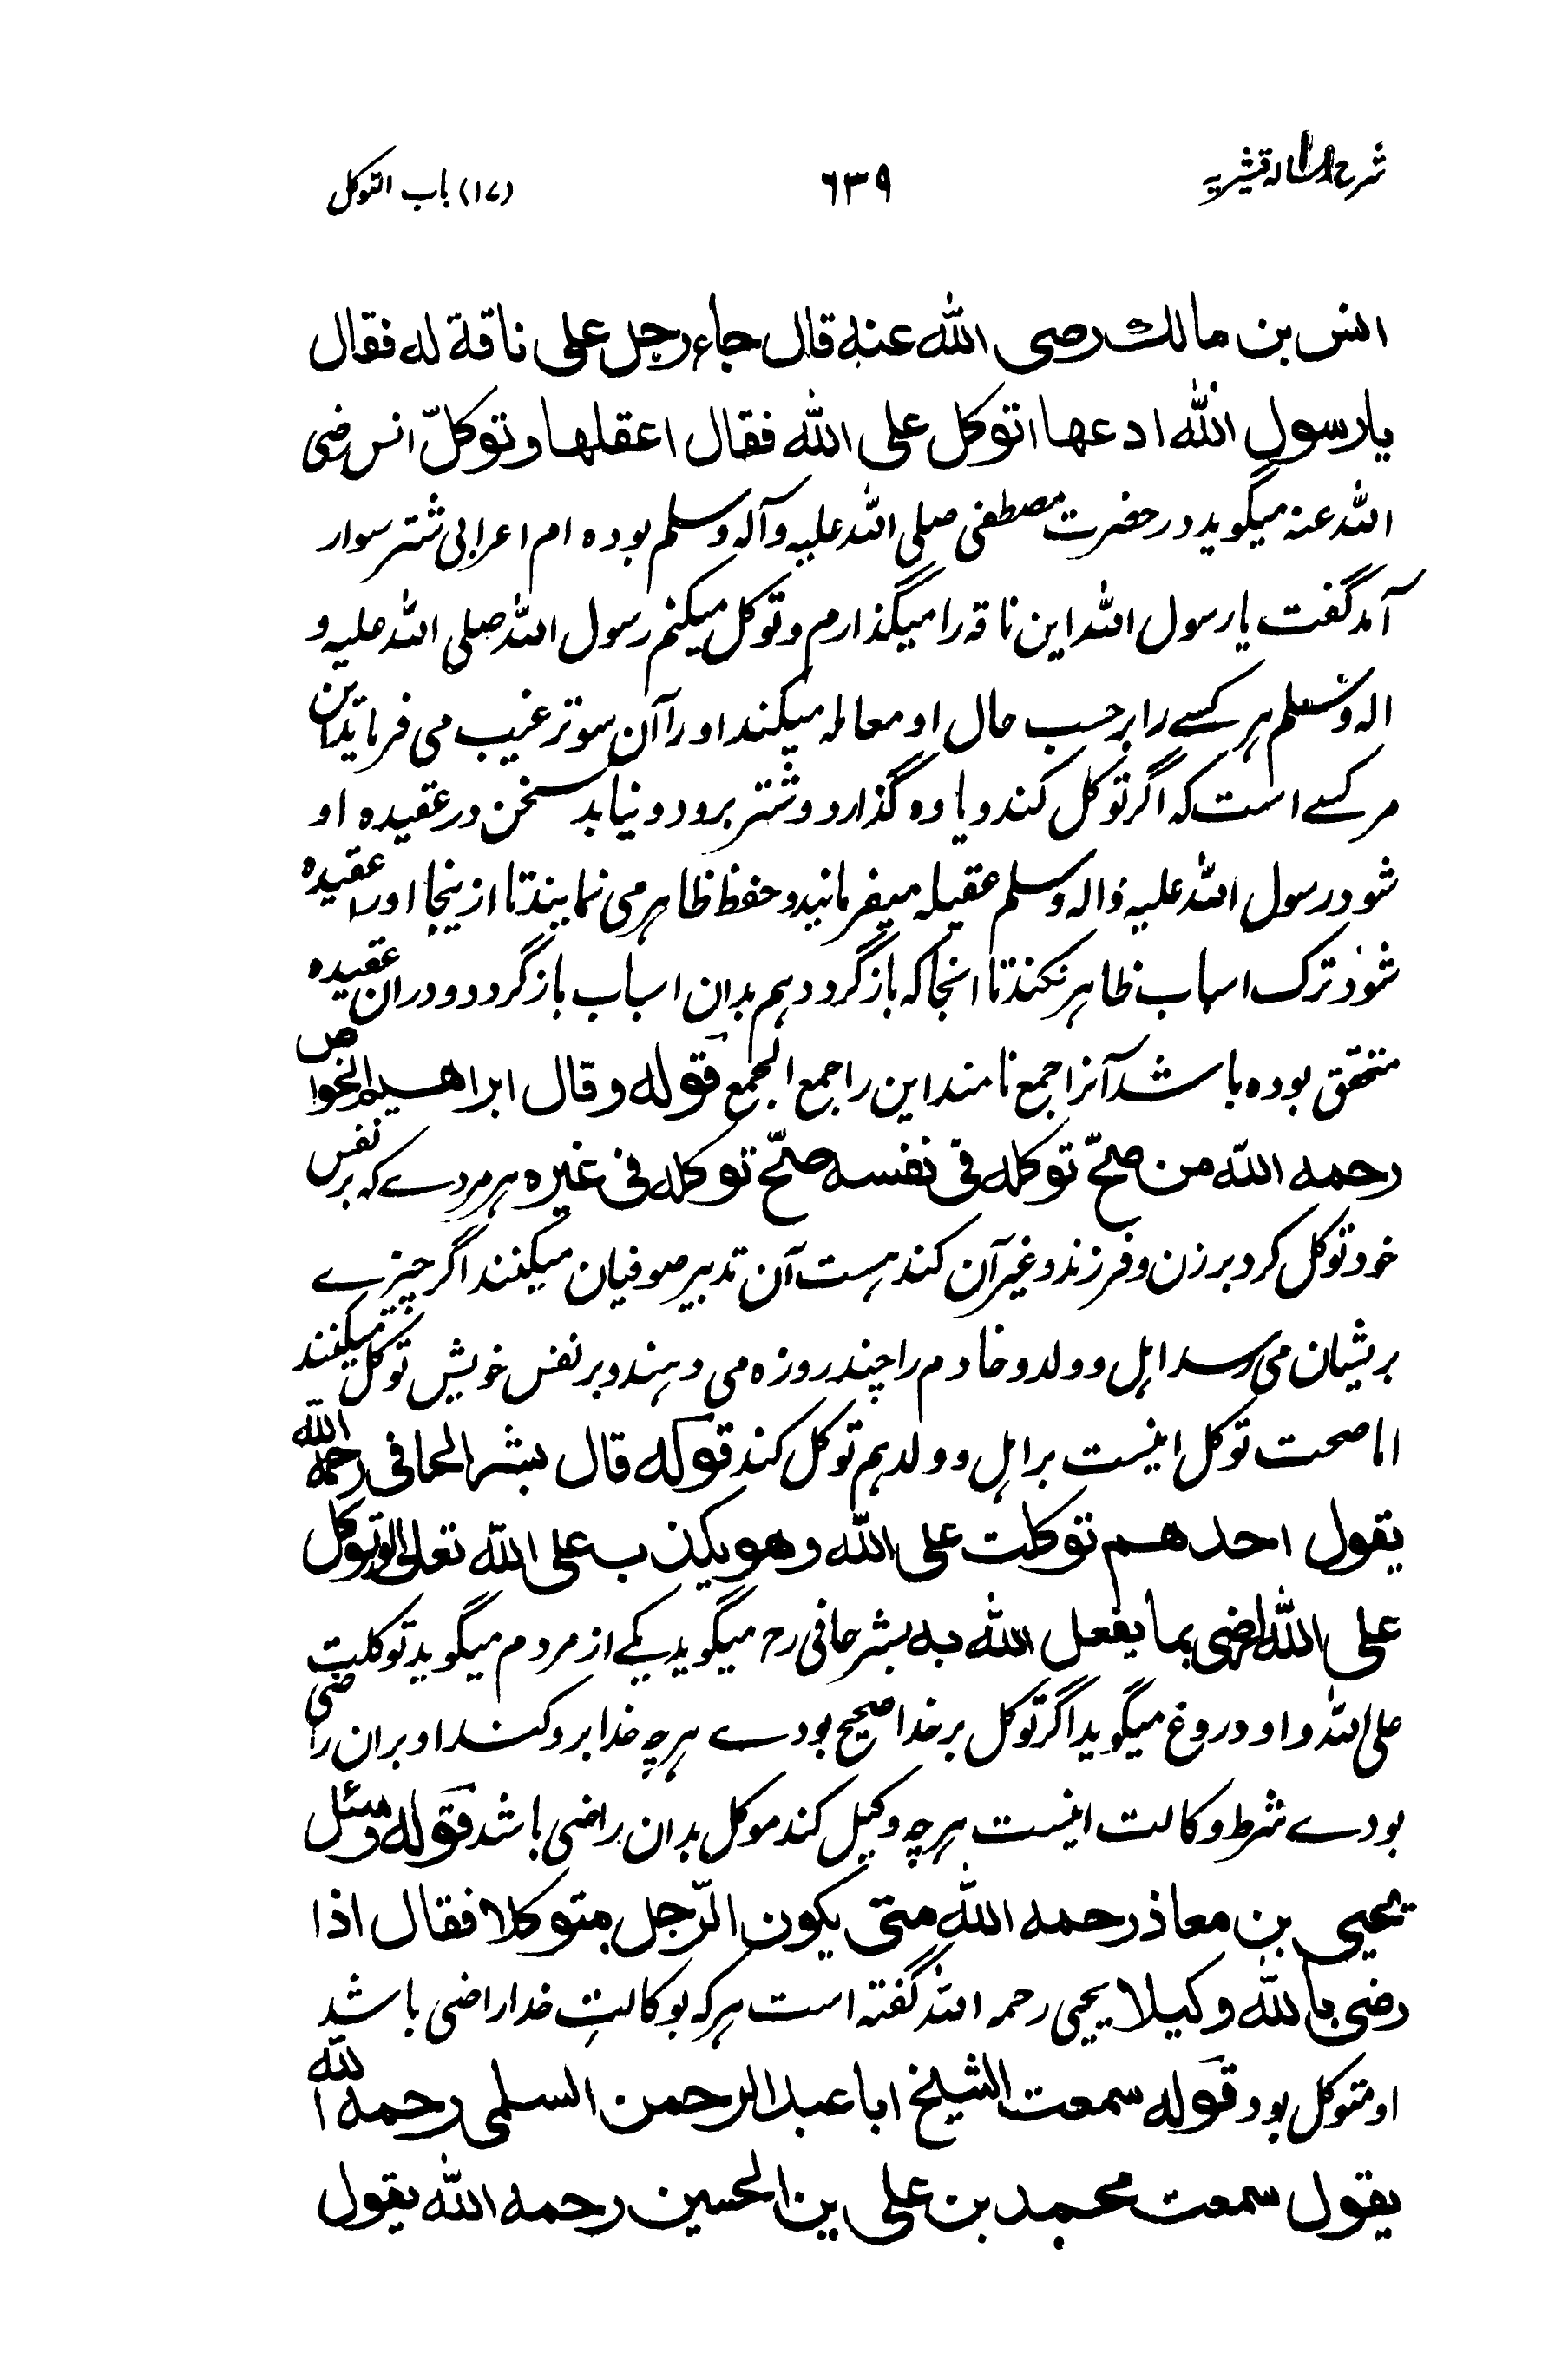 شرح رسالہ قشیریہ ۶۳۹ (۱۷) باب التوکل
انس بن مالک رضی الله عنه قال جاء رجل علی ناقة له فقال
یا رسول الله ادعها اتوکل علی الله فقال اعقلها و توکلّ انس رضی
الله عنه میگوید در حضرت مصطفی صلی الله علیه وآله وسلم بوده ام اعرابی شتر سوار
آمد گفت یا رسول الله این ناقه را میگذارم و توکل میکنم رسول الله صلی الله علیه و
اله وسلم هر کسے را بر حسب حال او معامله میکند او را آن سو ترغیب می فرماید این
مر کسے است که اگر توکل کند و یا وه گذارد و شتر برود و نیابد سخن در عقیده او
شود رسول الله علیه واله وسلم عقیله میفرمانید و حفظ ظاهر می نمایند تا از ینجا اورا عقیده
شود ترک اسباب ظاهر نکند تا انجا که باز گردد هم بدان اسباب باز گردد و دران عقیده
متحقق بوده باشد آنرا جمع نامند این را جمع الجمع قوله وقال ابراهیم الخواص
رحمه الله من صحّ توکله فی نفسه صحّ توکله فی غیره هر مردے که بر نفس
خود توکل کرد بر زن و فرزند و غیر آن کند هست آن تدبیر صوفیان میکنند اگر چیزے
بریشان می رسد اهل و ولد و خادم را چند روزه می دهند و بر نفس خویش توکل میکنند
اما صحت توکل اینست بر اهل و ولد هم توکل کند قوله قال بشر الحافی رحمه الله
یقول احدهم توکلت علی الله وهو یکذب علی الله تعالی لو توکل
علی الله لرضی بما یفعل الله به بشر حافی رح میگوید یکے از مردم میگوید توکلت
علی الله و او دروغ میگوید اگر توکل بر خدا صحیح بودے هر چه خدا برو کند او بران راضی
بودے شرط وکالت اینست هر چه وکیل کند موکل بدان راضی باشد قوله وسئل
یحیی بن معاذ رحمه الله متی یکون الرّجل متوکلا فقال اذا
رضی بالله وکیلا یحیی رحمه الله گفته است هر که بوکالتِ خدا راضی باشد
او متوکل بود قوله سمعت الشیخ ابا عبد الرحمن السلمی رحمه الله
یقول سمعت محمد بن علی بن الحسین رحمه الله یقول